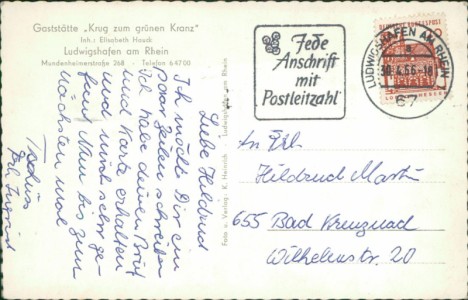 Gaststätte „Krug zum grünen Kranz"
Inh.: Elisabeth Hauck
Ludwigshafen am Rhein
Mundenheimerstraße 268 - Telefon 64700
Liebe Hildrud
Ich möcht Dir ein
paar Zeilen schreiben
Ich habe deinen Brief
und Karte erhalten
und mich sehr ge-
freut. Nun bis zum
nächsten mal
Tschüss
Ingrid
Foto u. Verlag: K. Heinrich - Ludwigshafen am Rhein
Jede
Anschrift
mit
Postleitzahl
LUDWIGSHAFEN AM RHEIN
a
30.4.66-18
67
DEUTSCHE BUNDESPOST
An Frl.
Hildrud Martin
655 Bad Kreuznad
Wilhelmstr. 20